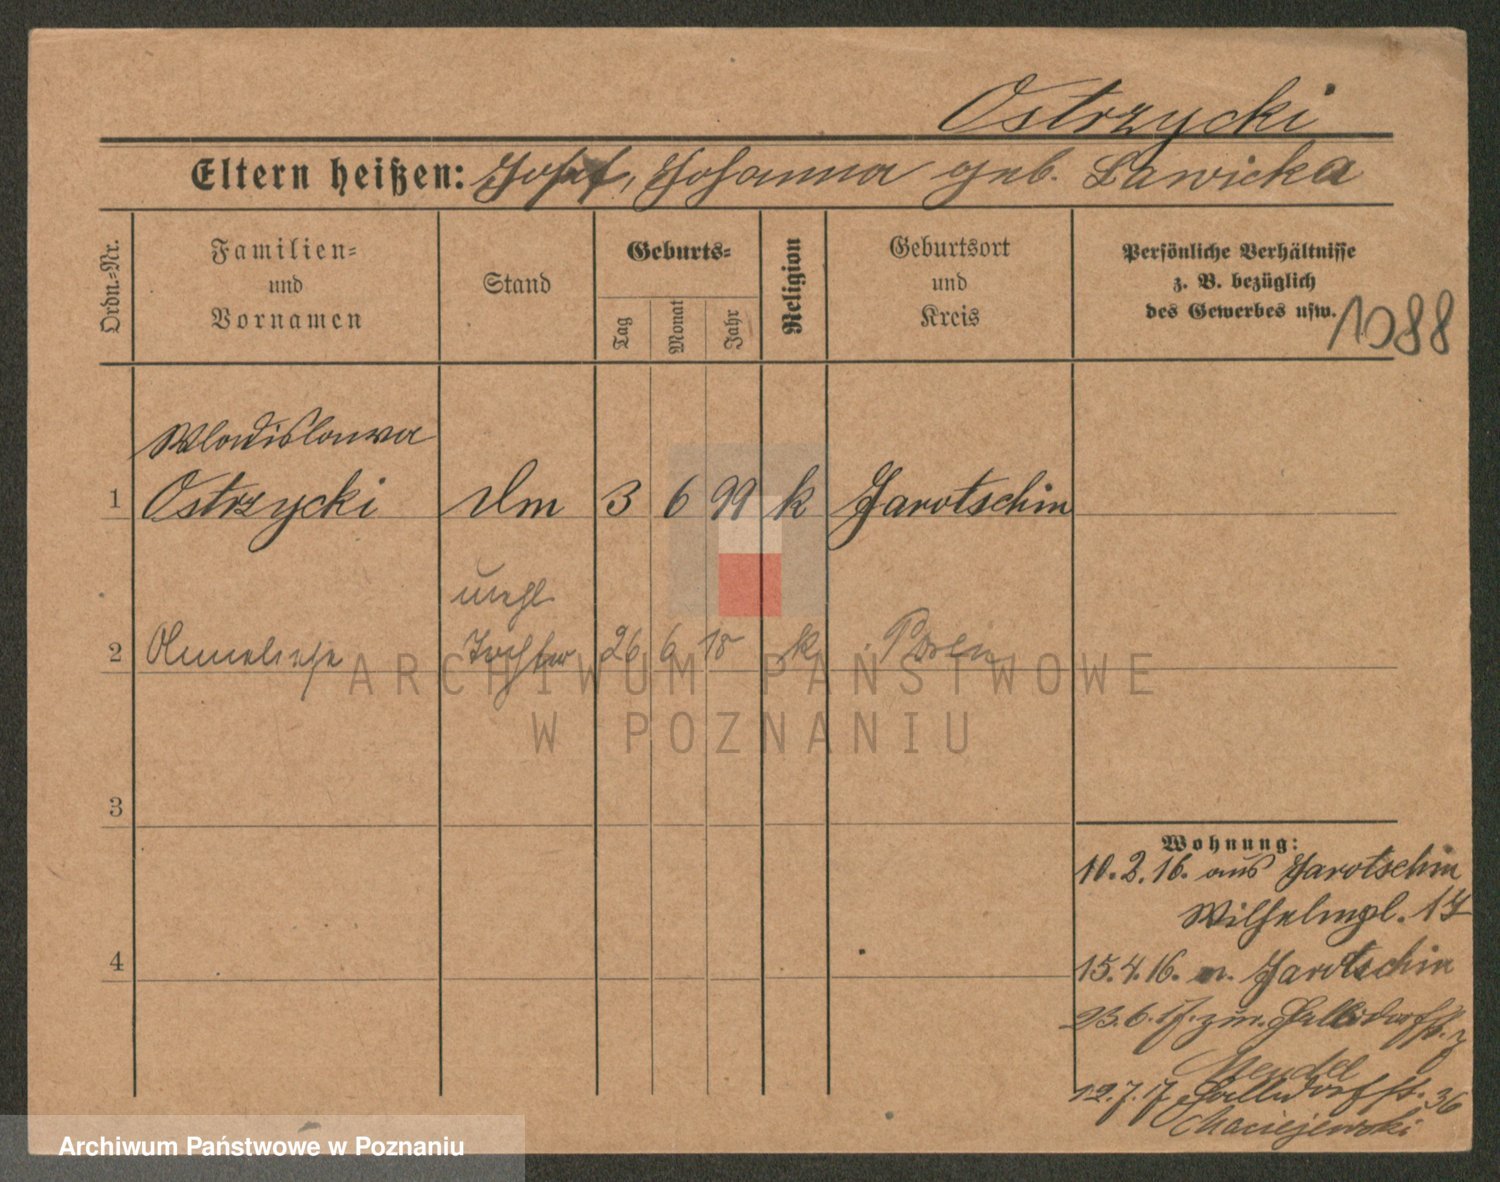 Ostrzycki
Eltern heißen: Josef, Johanna geb. Lawicka
Ordn.=Nr.
Familien=
und
Vornamen
Stand
Geburts=
Tag
Monat
Jahr
Religion
Geburtsort
und
Kreis
Persönliche Verhältnisse
z. B. bezüglich
des Gewerbes usw.
1088
Wladislawa
1 Ostrzycki Dm 3 6 99 k Jarotschin
unehl
2 Anneliese Tochter 26 6 18 k Posen
ARCHIWUM PAŃSTWOWE
W POZNANIU
3
4
Wohnung:
10.2.16. aus Jarotschin
Wilhelmpl. 17
15.4.16. n. Jarotschin
23.6.17. zur.
Mendel
12.7.17 36
Maciejewski
Archiwum Państwowe w Poznaniu